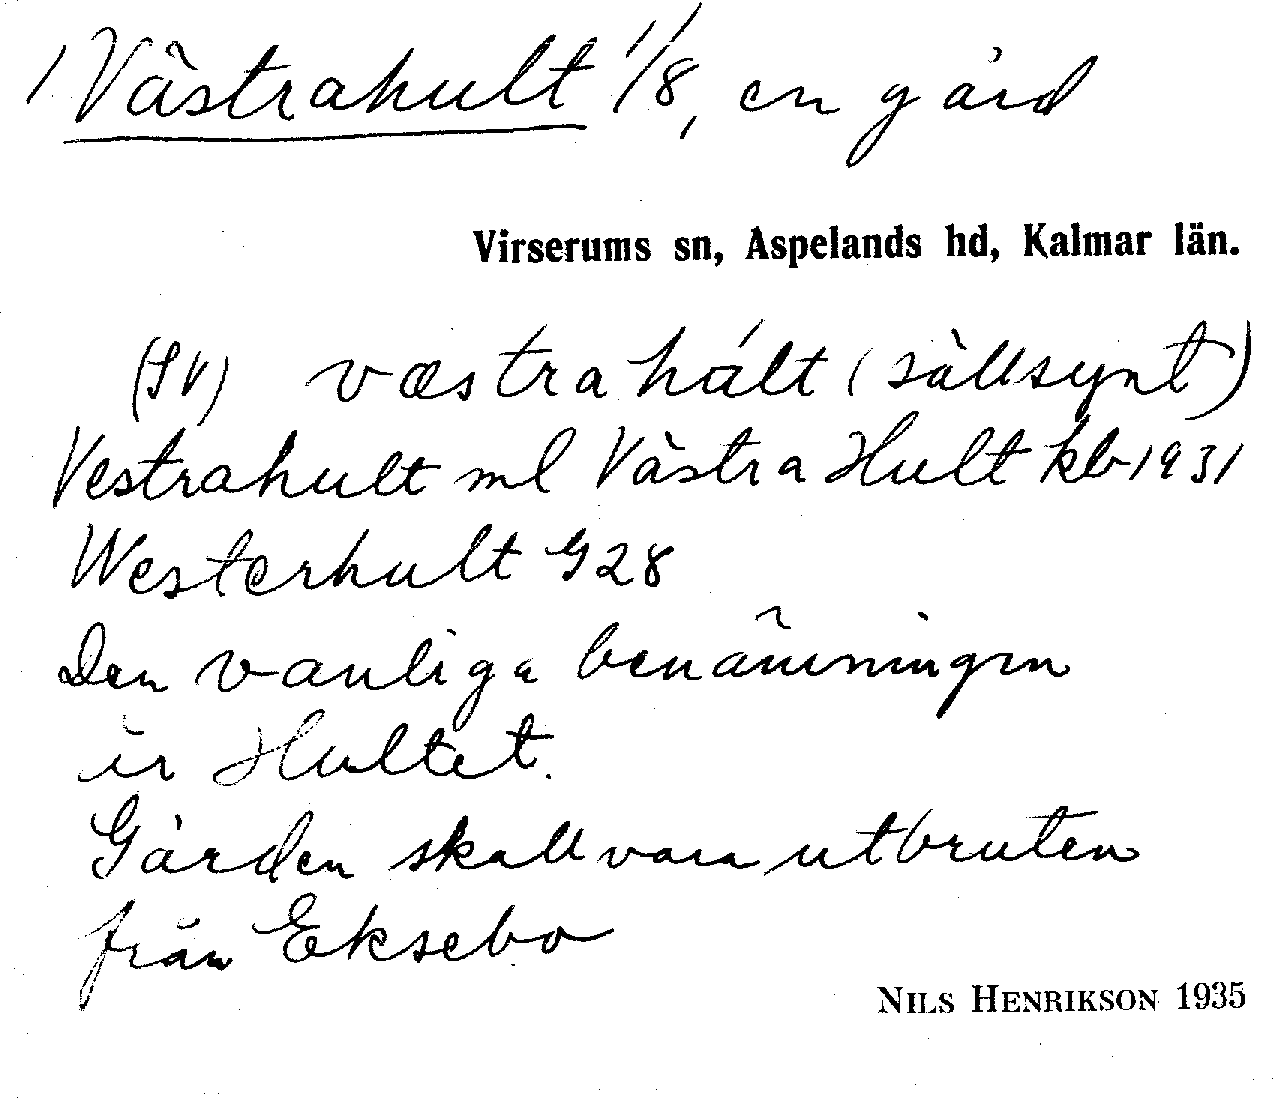 / Västrahult 1/8, en gård
Virserums sn, Aspelands hd, Kalmar län.
(SV) væstrahált (sällsynt)
Vestrahult ml Västra Hult kb 1931
Westerhult G28
Den vanliga benämningen
är Hultet.
Gården skall vara utbruten
från Eksebo
NILS HENRIKSON 1935